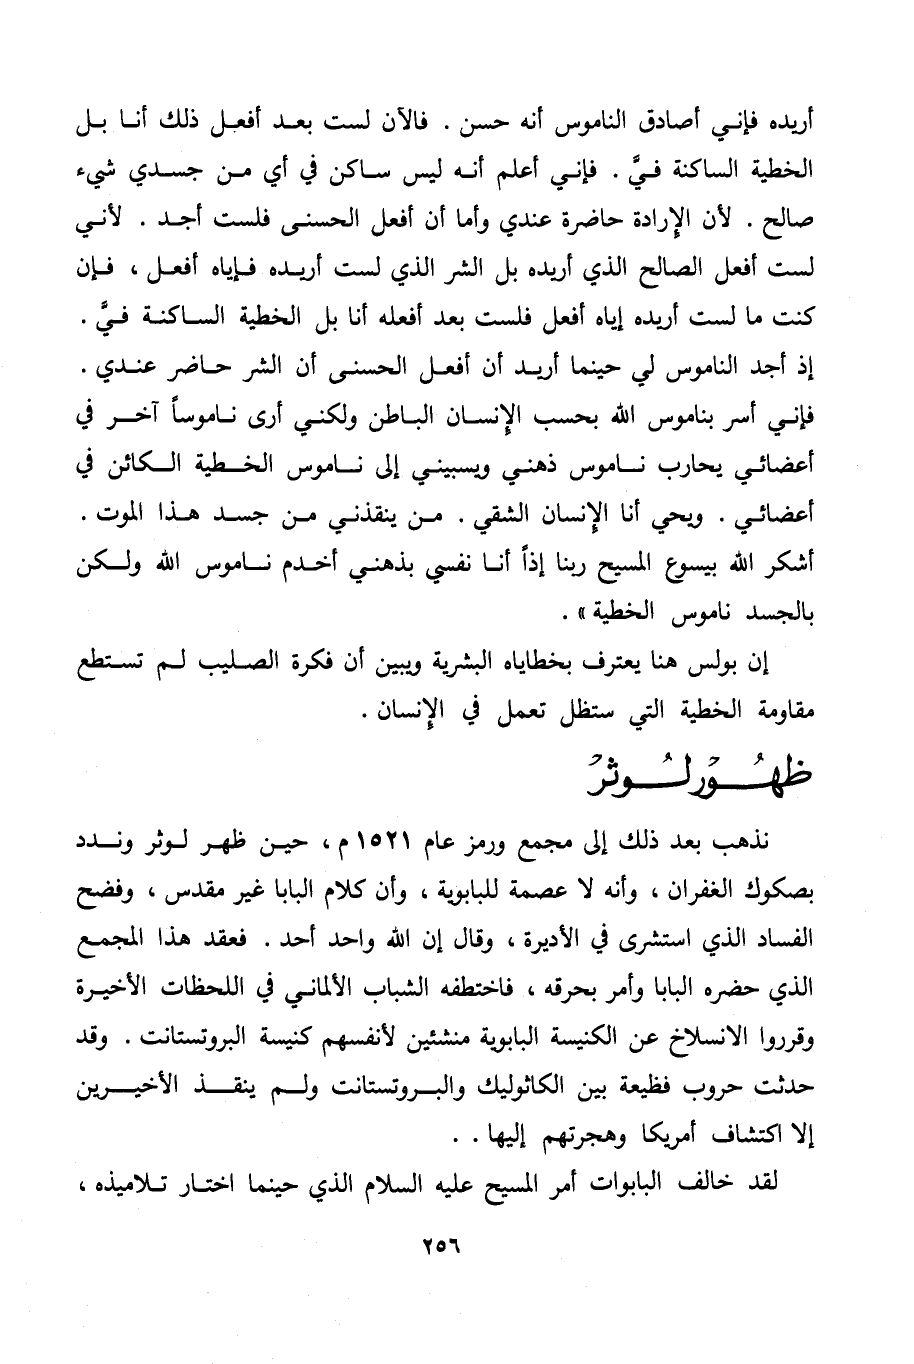 أريده فإني أصادق الناموس أنه حسن . فالآن لست بعد أفعل ذلك أنا بل
الخطية الساكنة فيَّ . فإني أعلم أنه ليس ساكن في أي من جسدي شيء
صالح . لأن الإرادة حاضرة عندي وأما أن أفعل الحسنى فلست أجد . لأني
لست أفعل الصالح الذي أريده بل الشر الذي لست أريده فإياه أفعل ، فإن
كنت ما لست أريده إياه أفعل فلست بعد أفعله أنا بل الخطية الساكنة فيَّ .
إذ أجد الناموس لي حينما أريد أن أفعل الحسنى أن الشر حاضر عندي .
فإني أسر بناموس الله بحسب الإنسان الباطن ولكني أرى ناموساً آخر في
أعضائي يحارب ناموس ذهني ويسبيني إلى ناموس الخطية الكائن في
أعضائي . ويحي أنا الإنسان الشقي . من ينقذني من جسد هذا الموت .
أشكر الله بيسوع المسيح ربنا إذاً أنا نفسي بذهني أخدم ناموس الله ولكن
بالجسد ناموس الخطية » .
إن بولس هنا يعترف بخطاياه البشرية ويبين أن فكرة الصليب لم تستطع
مقاومة الخطية التي ستظل تعمل في الإنسان .
ظهُور لُوثرْ
نذهب بعد ذلك إلى مجمع ورمز عام ١٥٢١ م ، حين ظهر لوثر وندد
بصكوك الغفران ، وأنه لا عصمة للبابوية ، وأن كلام البابا غير مقدس ، وفضح
الفساد الذي استشرى في الأديرة ، وقال إن الله واحد أحد . فعقد هذا المجمع
الذي حضره البابا وأمر بحرقه ، فاختطفه الشباب الألماني في اللحظات الأخيرة
وقرروا الانسلاخ عن الكنيسة البابوية منشئين لأنفسهم كنيسة البروتستانت . وقد
حدثت حروب فظيعة بين الكاثوليك والبروتستانت ولم ينقذ الأخيرين
إلا اكتشاف أمريكا وهجرتهم إليها . .
لقد خالف البابوات أمر المسيح عليه السلام الذي حينما اختار تلاميذه ،
٢٥٦